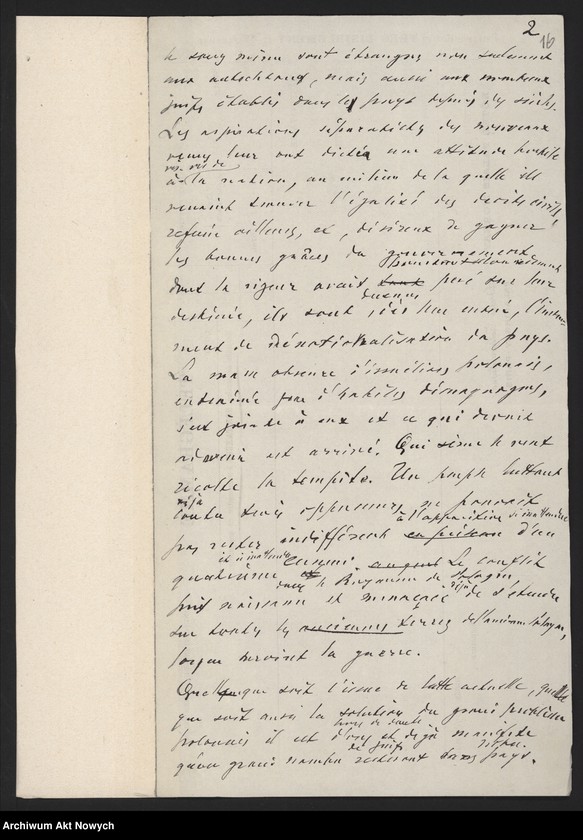 2
16
le sang même sont étrangers non seulement
aux autochtones, mais aussi aux nombreux
juifs établis dans le pays depuis des siècles.
Les aspirations séparatistes des nouveaux
venus leur ont dicté une attitude hostile
vis-à-vis de
à la nation, au milieu de laquelle ils
venaient trouver l'égalité des droits civils,
refusée ailleurs, et, désireux de gagner
les bonnes grâces du gouvernement
dont la rigueur avait tant pesé sur leur
destinée, ils sont devenus, dès leur entrée, l'instru-
ment de dénationalisation du pays.
La masse obscure d'israélites polonais,
entraînée par d'habiles démagogues,
s'est jointe à eux et ce qui devait
advenir est arrivé. Qui sème le vent
récolte la tempête. Un peuple luttant
déjà
contre trois oppresseurs ne pouvait
pas rester indifférent à l'apparition si inattendue d'un
quatrième ennemi. Le conflit
dans le Royaume de Pologne
puis naissant et menaçait déjà de s'étendre
sur toutes les anciennes terres de l'ancienne Pologne,
lorsque survint la guerre.
Quelle que soit l'issue de lutte actuelle, quelle
que soit aussi la solution du grand problème
hors de doute
polonais il est d'ores et déjà manifeste
de juifs
qu'un grand nombre resteront dans pays.
Archiwum Akt Nowych